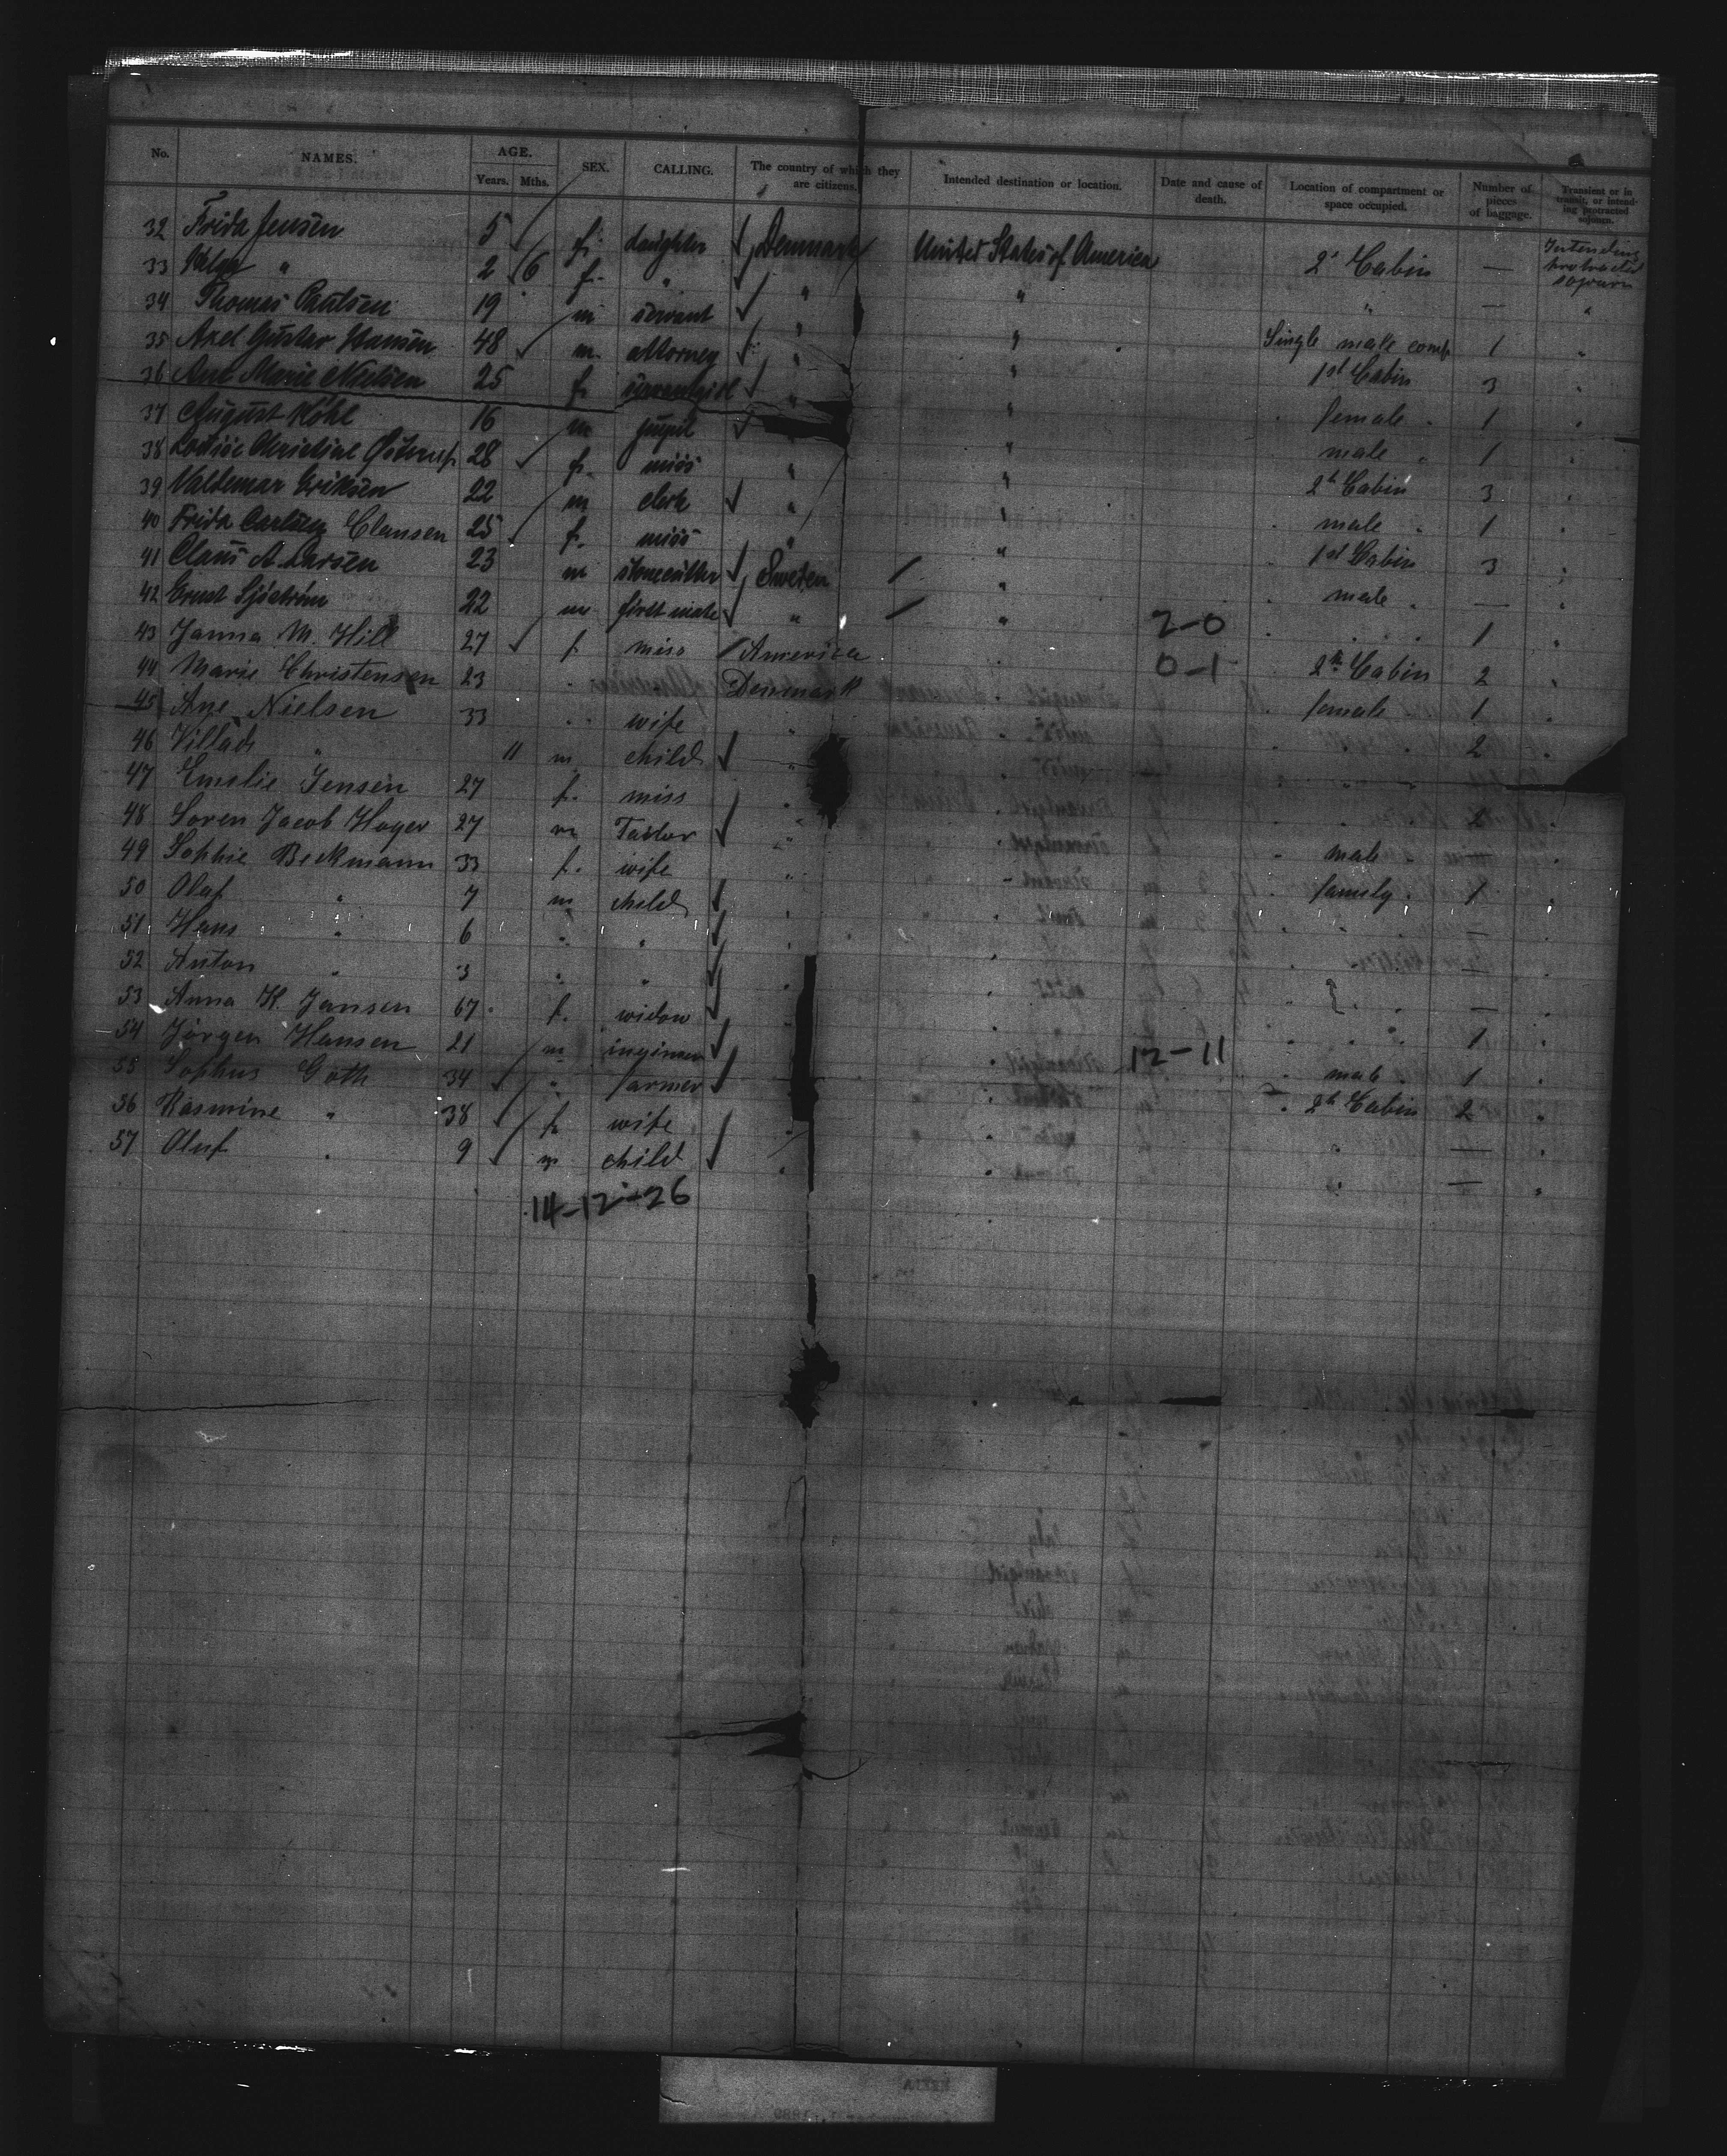 No. NAMES. AGE. Years. Mths. SEX. CALLING. The country of which they are citizens. Intended destination or location. Date and cause of death. Location of compartment or space occupied. Number of pieces of baggage. Transient or in transit, or intending protracted sojourn.
32 Frida Jensen 5 f. daughter Denmark United States of America 2' Cabin — Intending protracted sojourn
33 " 2 6 f. " " " " — "
34 Thomas Paulsen 19 m servant " " Single male comp 1 "
35 Axel Gustav Hansen 48 m. attorney " " 1st Cabin 3 "
36 Ane Marie Nielsen 25 f. servantgirl " " female " 1 "
37 August Kohl 16 m pupil " male " 1 "
38 Louise 28 f. miss " " 2d Cabin 3 "
39 Valdemar Eriksen 22 m clerk " " male " 1 "
40 Frida Carlsen Clausen 25 f. miss " " 1st Cabin 3 "
41 Claus A. Larsen 23 m stonecutter Sweden " male " — "
42 Ernst Sjöström 22 m first mate " " 2-0 " " 1 "
43 Janna M. Hill 27 f miss America " 0-1 2th Cabin 2 "
44 Marie Christensen 23 " Denmark " female 1 "
45 Ane Nielsen 33 " wife " " " 2 "
46 Villads " 11 m child "
47 Emelie Jensen 27 f. miss " " 2 "
48 Soren Jacob Hoger 27 m Tailor " male "
49 Sophie Beckmann 33 f. wife " " family " 1 "
50 Oluf " 7 m child " " " — "
51 Hans " 6 " " " " " — "
52 Anton " 3 " " " " " — "
53 Anna K. Jansen 67 f. widow " " " 1 "
54 Jörgen Hansen 21 m " 12-11 male " 1 "
55 Sophus Goth 34 " farmer " 2th Cabin 2 "
56 Rasmine " 38 f. wife " " " — "
57 Oluf " 9 m child " " " — "
14-12-26